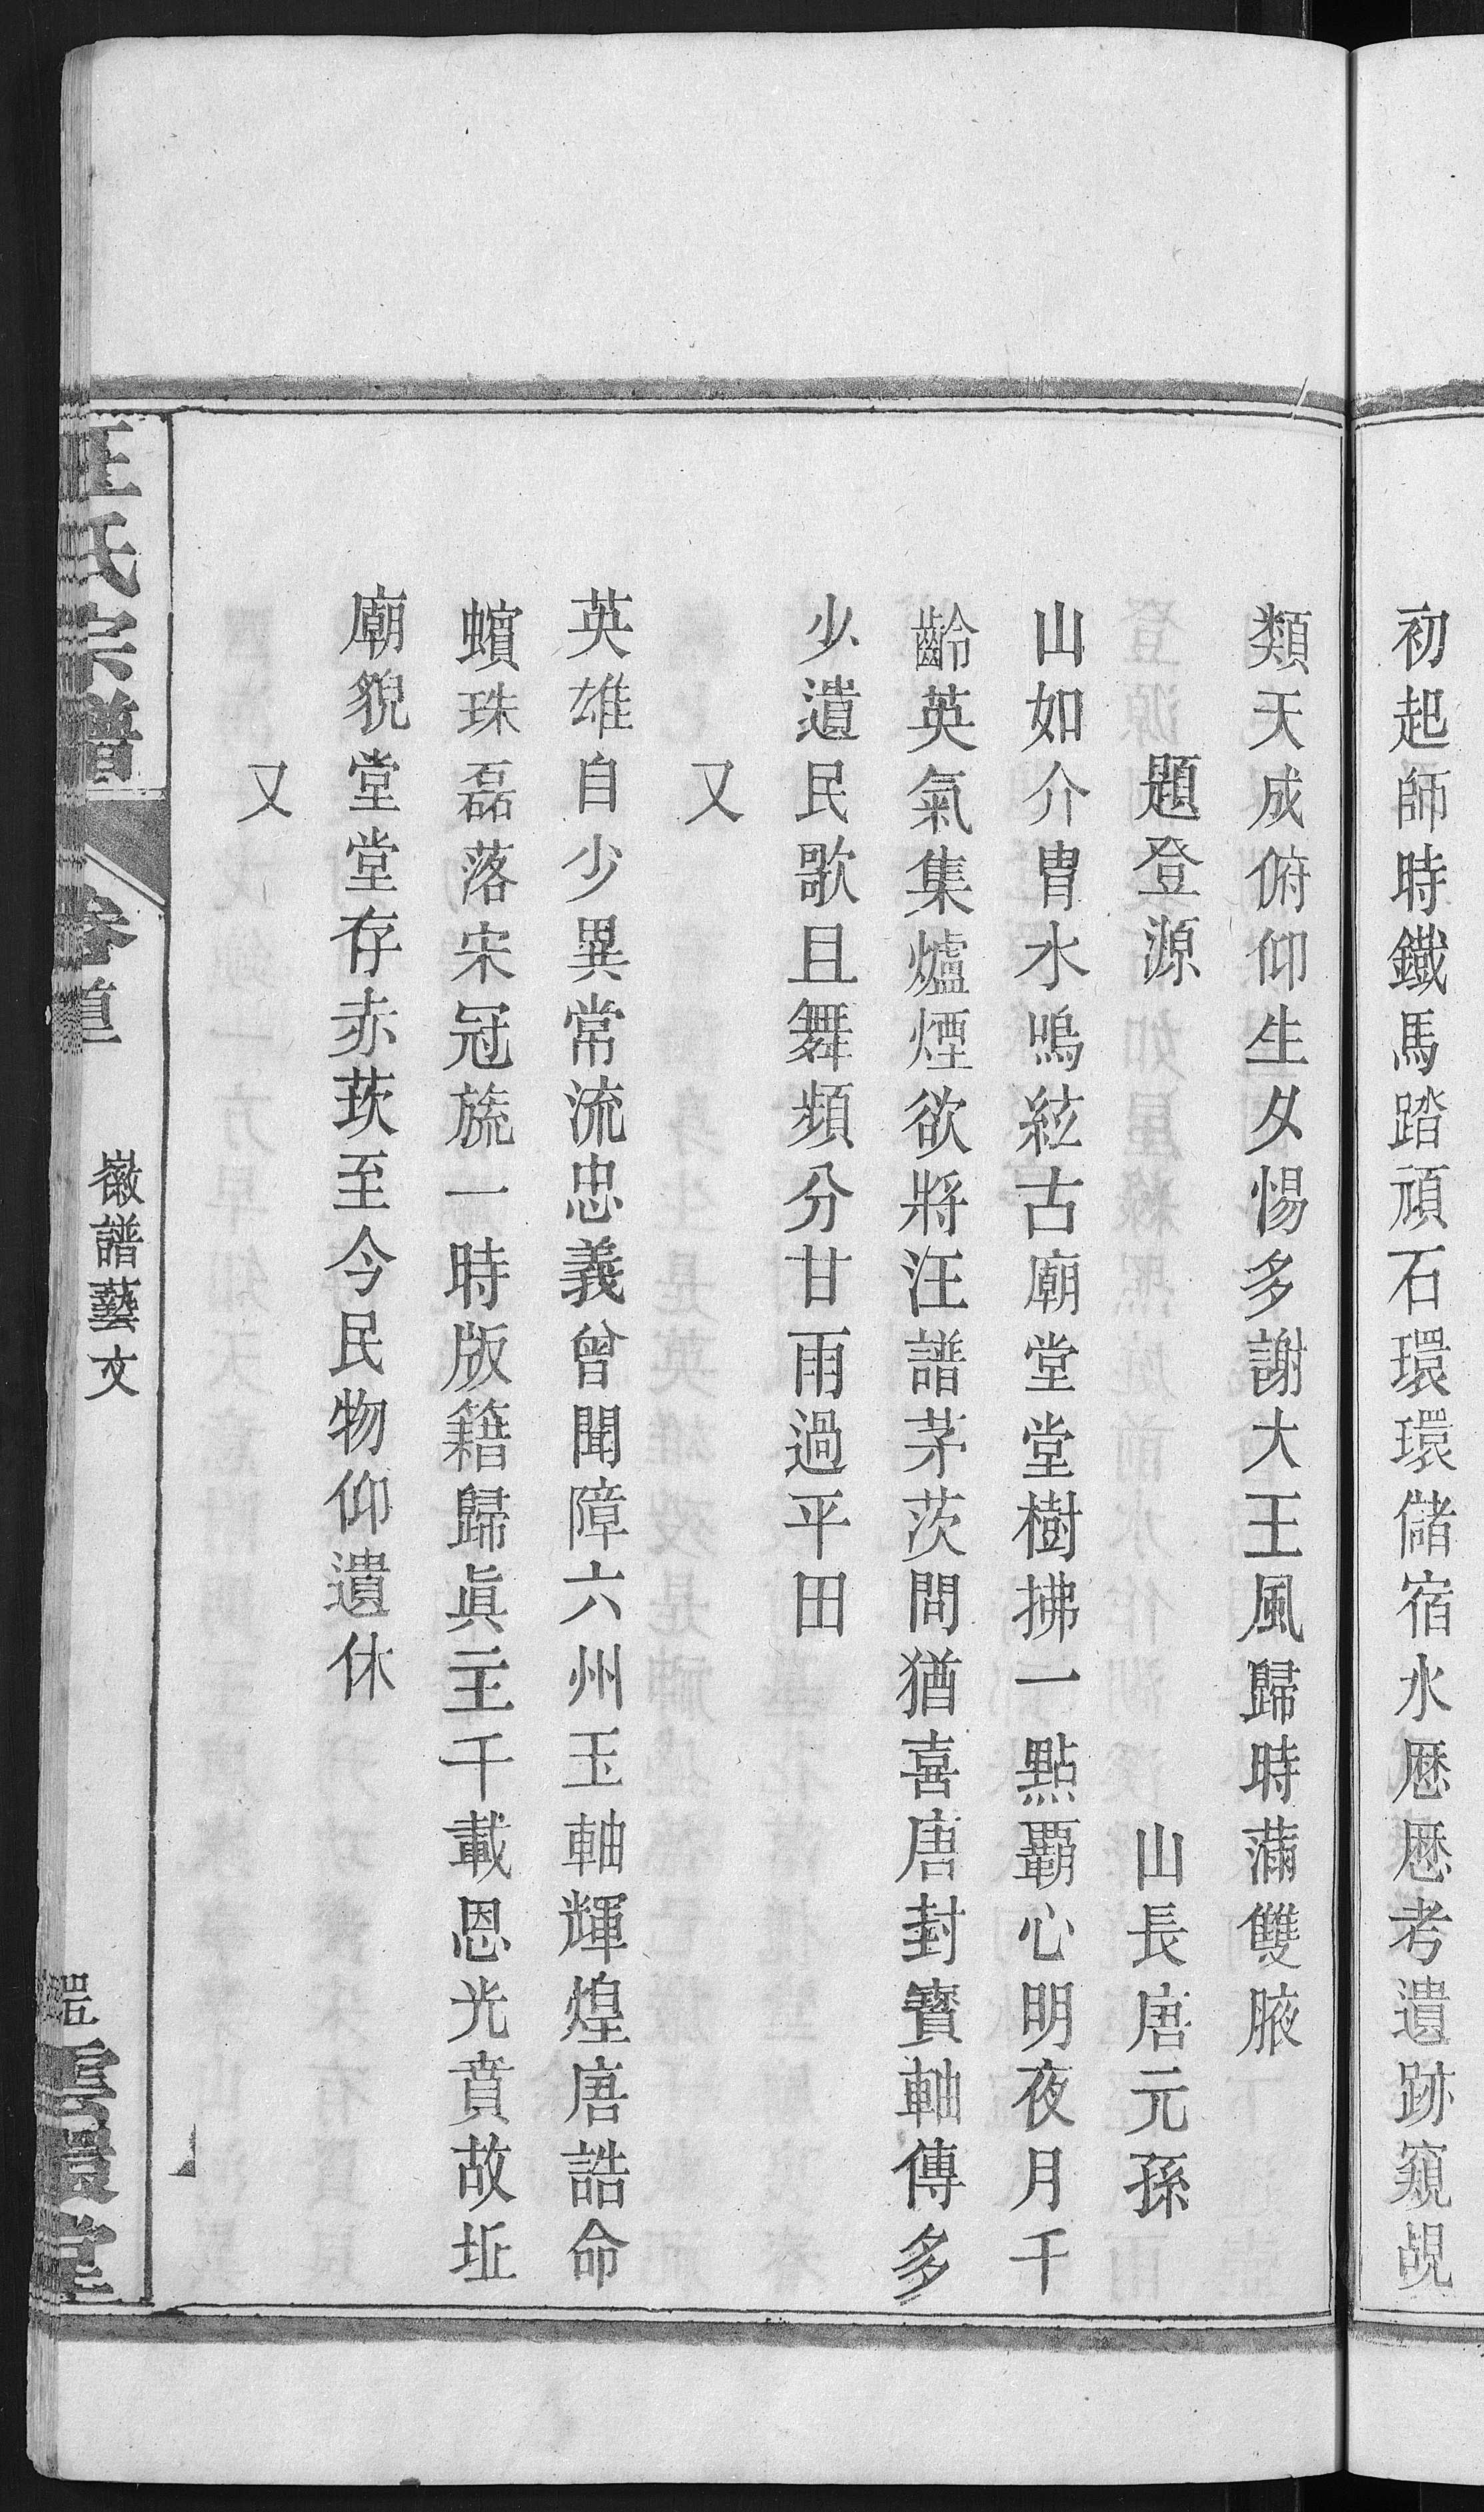 初起師時鐵馬踏頑石環環儲宿水厯厯考遺跡窺覘
類天成俯仰生夕惕多謝大王風歸時滿雙腋
題登源 山長唐元孫
山如介冑水鳴絃古廟堂堂樹拂一點霸心明夜月千
齡英氣集爐煙欲將汪譜茅茨問猶喜唐封寶軸傳多
少遺民歌且舞頻分甘雨過平田
又
英雄自少異常流忠義曾聞障六州玉軸輝煌唐誥命
蠙珠磊落宋冠旒一時版籍歸眞主千載恩光賁故址
廟貌堂堂存赤芡至今民物仰遺休
又
汪氏宗譜 卷 徽譜藝文 堂